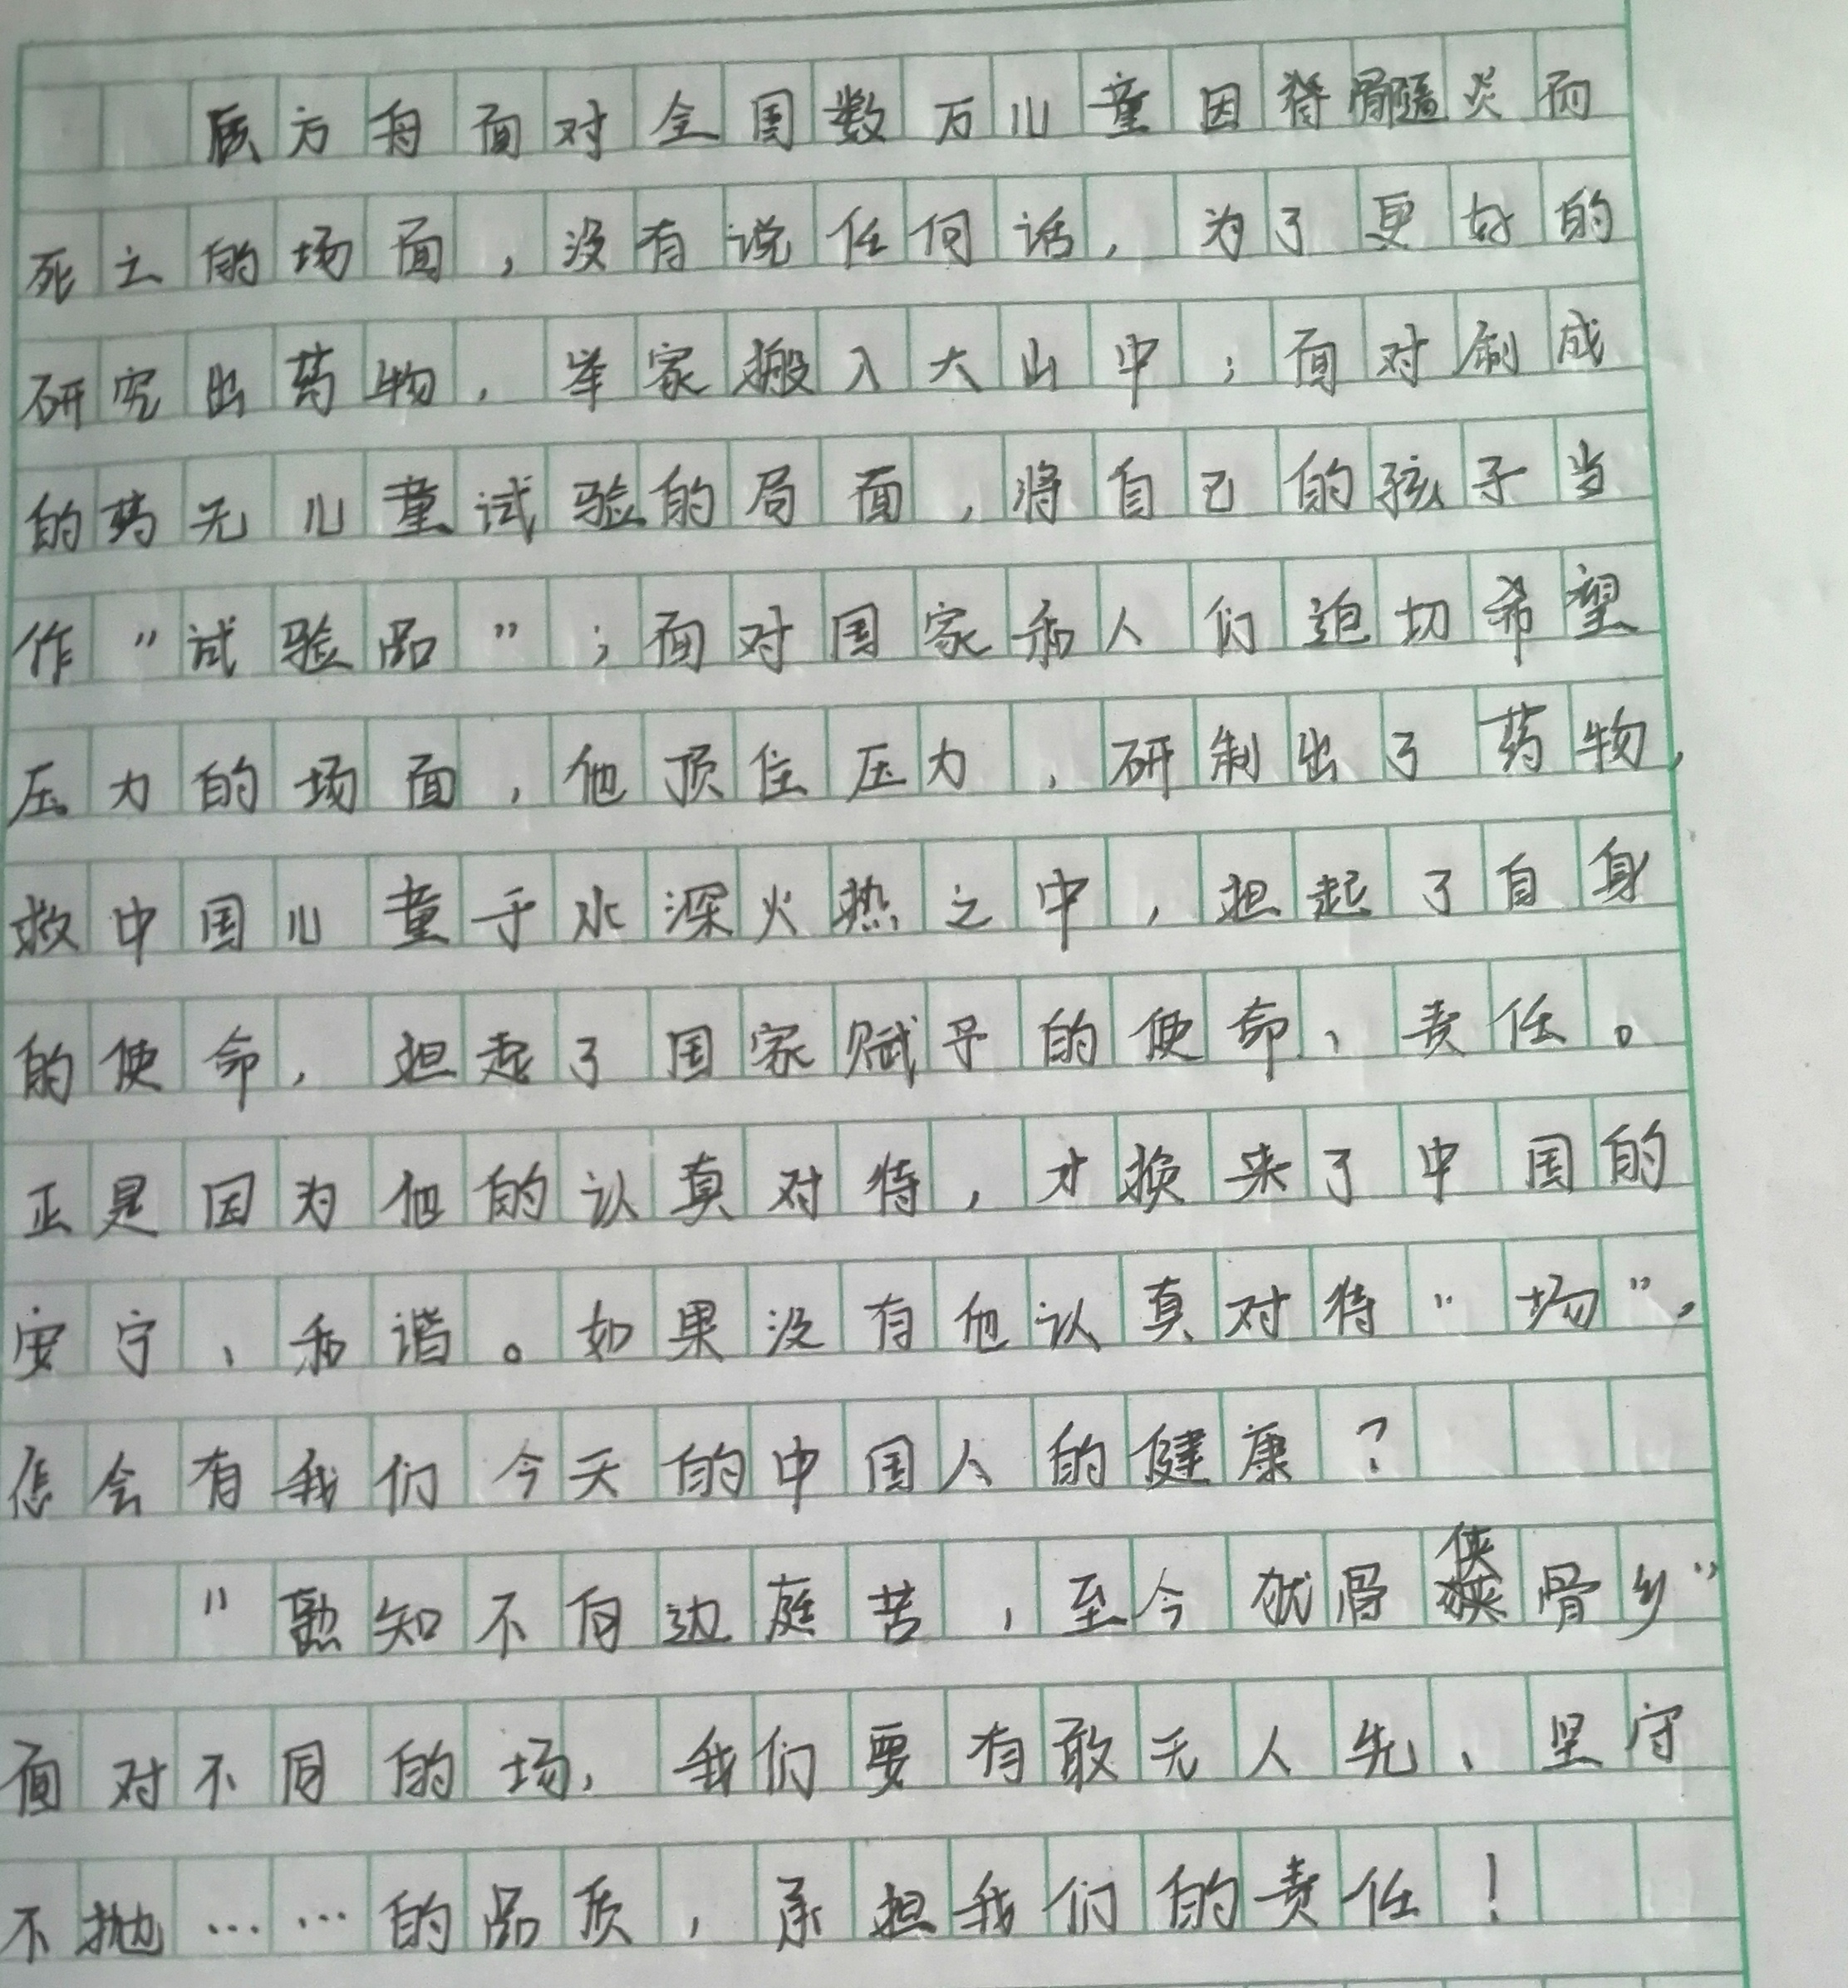 顾方舟面对全国数万儿童因脊髓炎而
死亡的场面，没有说任何话，为了更好的
研究出药物，举家搬入大山中；面对制成
的药无儿童试验的局面，将自己的孩子当
作“试验品”；面对国家和人们迫切希望
压力的场面，他顶住压力，研制出了药物，
救中国儿童于水深火热之中，担起了自身
的使命，担起了国家赋予的使命、责任。
正是因为他的认真对待，才换来了中国的
安宁、和谐。如果没有他认真对待“场”，
怎会有我们今天的中国人的健康？
“孰知不向边庭苦，至今犹骨侠骨乡”
面对不同的场，我们要有敢无人先、坚守
不抛……的品质，承担我们的责任！